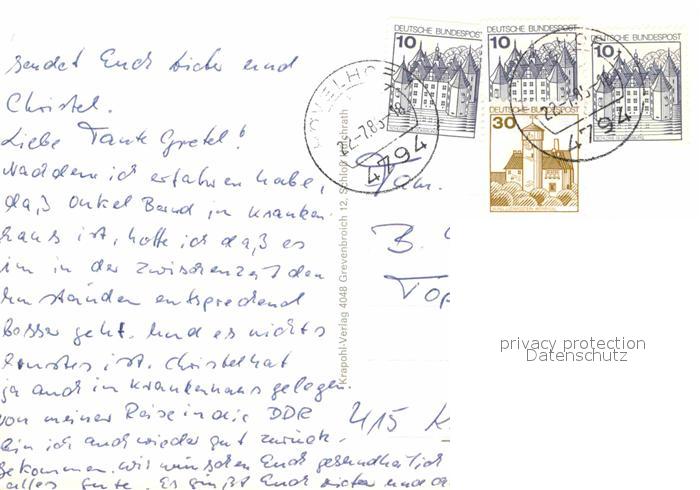 sendet Euch Dieter und
Christel.
Liebe Tante Gretel!
Nachdem ich erfahren habe,
daß Onkel Bernd im Kranken-
haus ist, hoffe ich daß es
im in der zwischenzeit den
Umständen entspredend
besser geht. Und es nichts
Ernstes ist. Christel hat
ja auch im Krankenhaus gelegen.
von meiner Reise in die DDR
bin ich auch wieder gut zurück
gekommen. wir wünschen Euch gesundheitlich
alles gute. Es grüßt Euch Dieter und
Krapohl-Verlag 4048 Grevenbroich 12, Schloß Hülchrath
DEUTSCHE BUNDESPOST
10
DEUTSCHE BUNDESPOST
10
DEUTSCHE BUNDESPOST
10
DEUTSCHE BUNDESPOST
30
HÖVELHOF
22.-7.83-18
4794
22.-7.83-18
4794
Fam.
B.
Top
415 K
privacy protection
Datenschutz